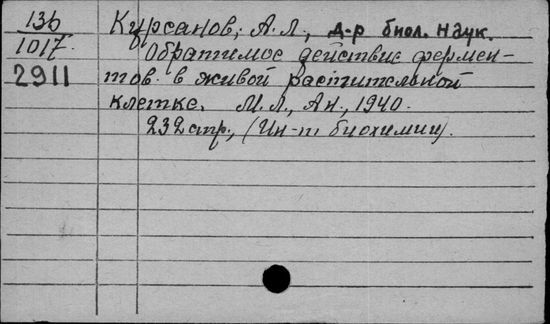 136
Курсанов, А.Л., д-р биол. наук.
1017
Обратимое действие фермен-
2911
тов в живой растительной
клетке. М.Л., Ан., 1940.
232 стр., (Ин-т биохимии).